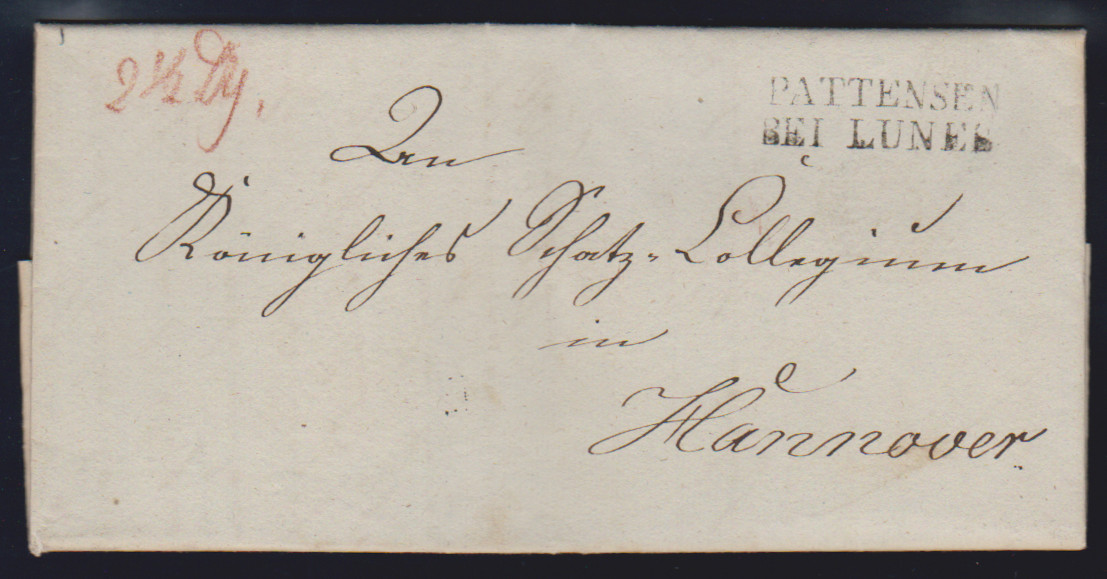 2 1/2
PATTENSEN
BEI LUNEB
An
Königliches Schatz-Collegium
in
Hannover